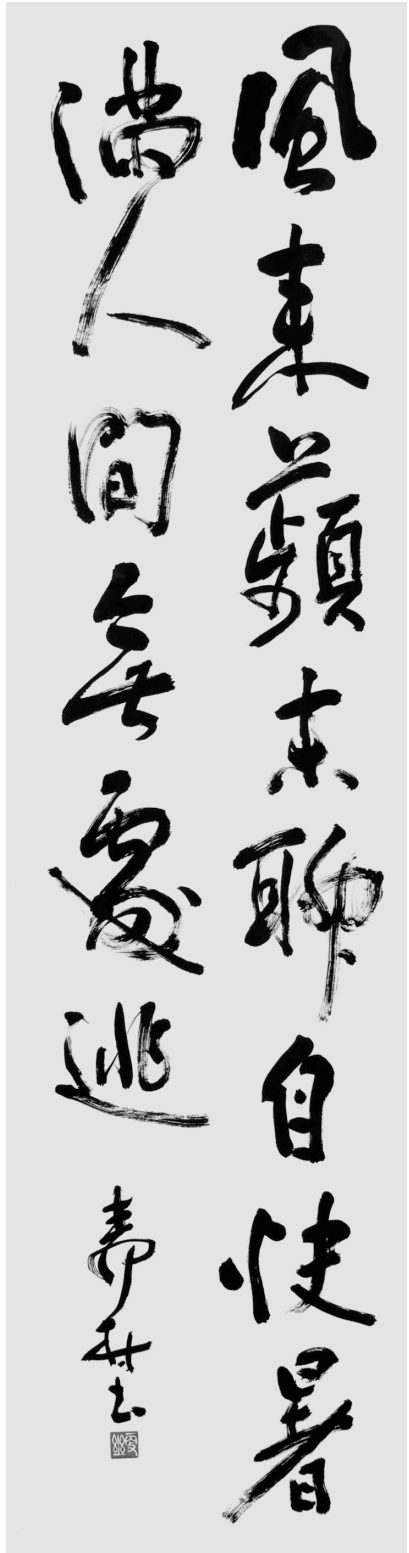 風来蘋末聊自快暑
満人間無處逃
壽村書